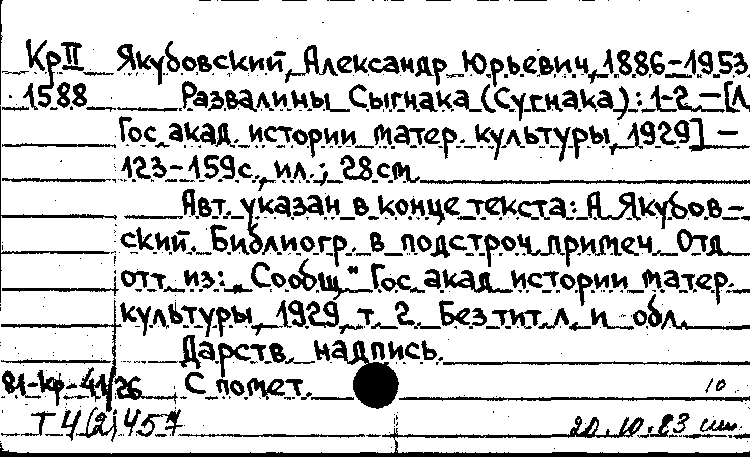 Кр II Якубовский, Александр Юрьевич, 1886-1953
1588 Развалины Сыгнака (Сугнака): 1-2. – [Л.
Гос. акад. истории матер. культуры, 1929] –
123-159 с., ил.; 28 см.
Авт. указан в конце текста: А. Якубов-
ский. Библиогр. в подстроч. примеч. Отд.
отт. из: „Сообщ." Гос. акад. истории матер.
культуры, 1929, т. 2. Без тит. л. и обл.
Дарств. надпись.
81-кр-41/26 С помет. 10
Т4(2)457 20.10.83